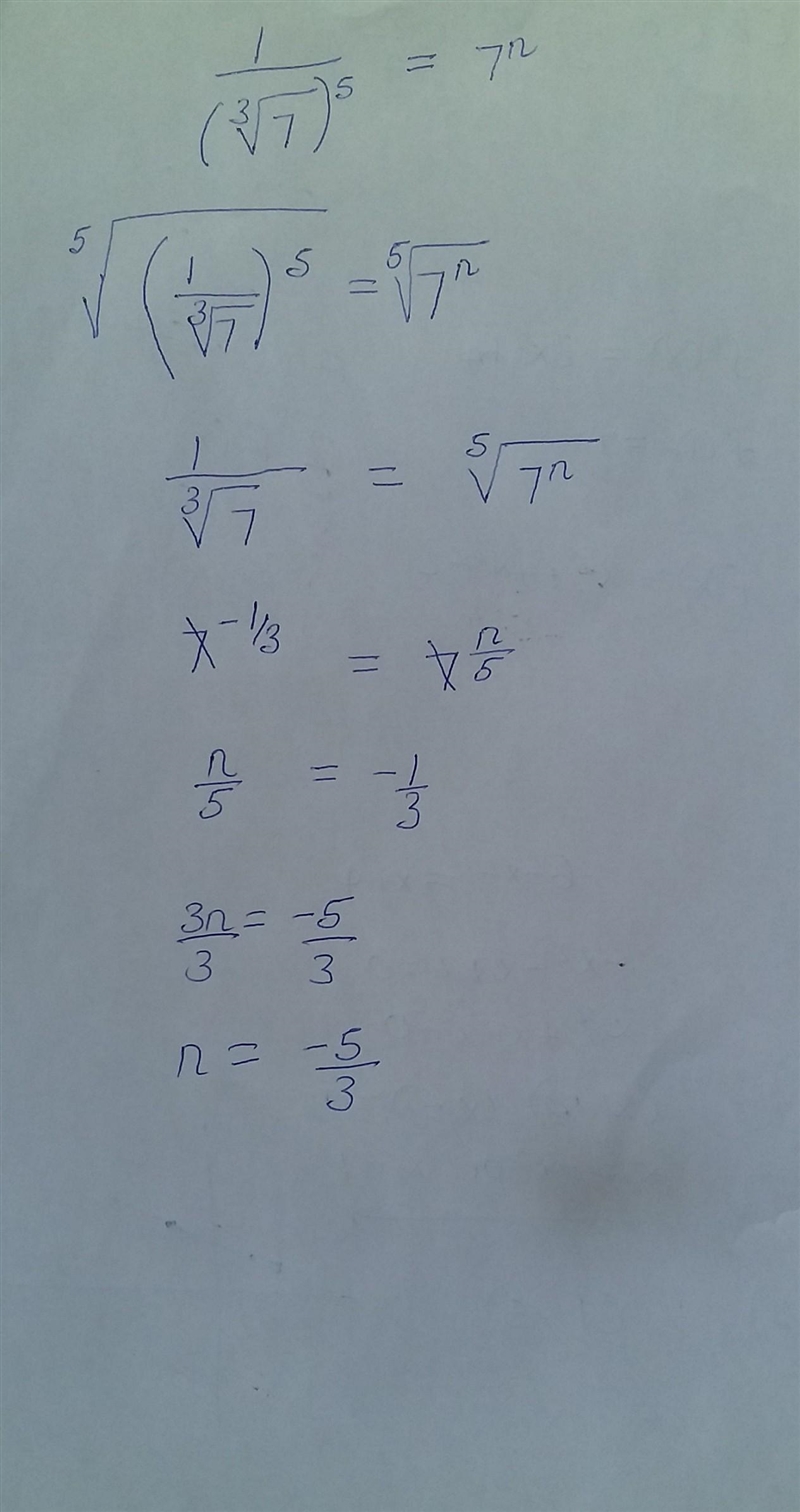 1/(∛7)^5 = 7^n
⁵√((1/∛7)^5) = ⁵√(7^n)
1/∛7 = ⁵√(7^n)
7^(-1/3) = 7^(n/5)
n/5 = -1/3
3n/3 = -5/3
n = -5/3